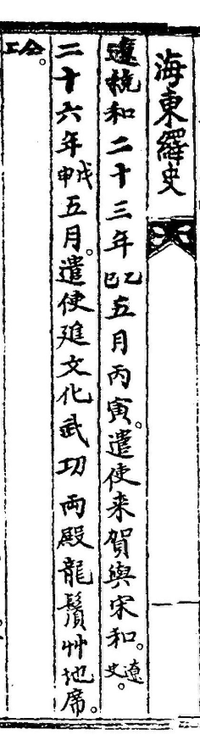 海東繹史
遼統和二十三年乙巳五月丙寅。遣使来賀與宋和。遼史。
二十六年戊申五月。遣使進文化武功両殿龍鬚艸地席。
仝上。